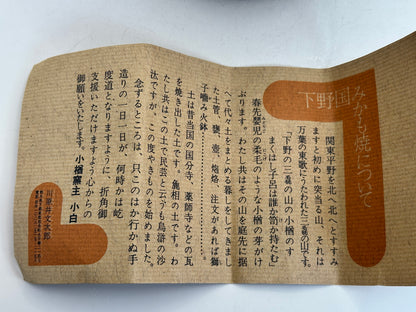 下野国みかも焼について
関東平野を北へ北へとすすみ
ますと初めに突当る山、それは
万葉の東歌にうたわれた三毳の山です。
「下野の三毳の山の小楢のす
まぐはし子呂は誰か笥か持たむ」
春先嬰児の柔毛のような小楢の芽がけ
ぶります。わたし共はその山を庭先に据
へて代々土をまとめる暮しをしてきまし
た土管、甕、壺、焙烙、注文があれば獅
子噛み火鉢
土は昔当国の国分寺、薬師寺などの瓦
を焼き出した土です。麁相の土です。わ
たし共はこの土で民芸と云うも烏滸の沙
汰ですが、この度やきものを始めました。
念ずるところは、只このはか行かぬ手
造りの一日一日が、何時かは屹
度道となりますように、折角御
支援いただけますよう心からの
御願いをいたします。
小楢窯主 小白
川原井文次郎